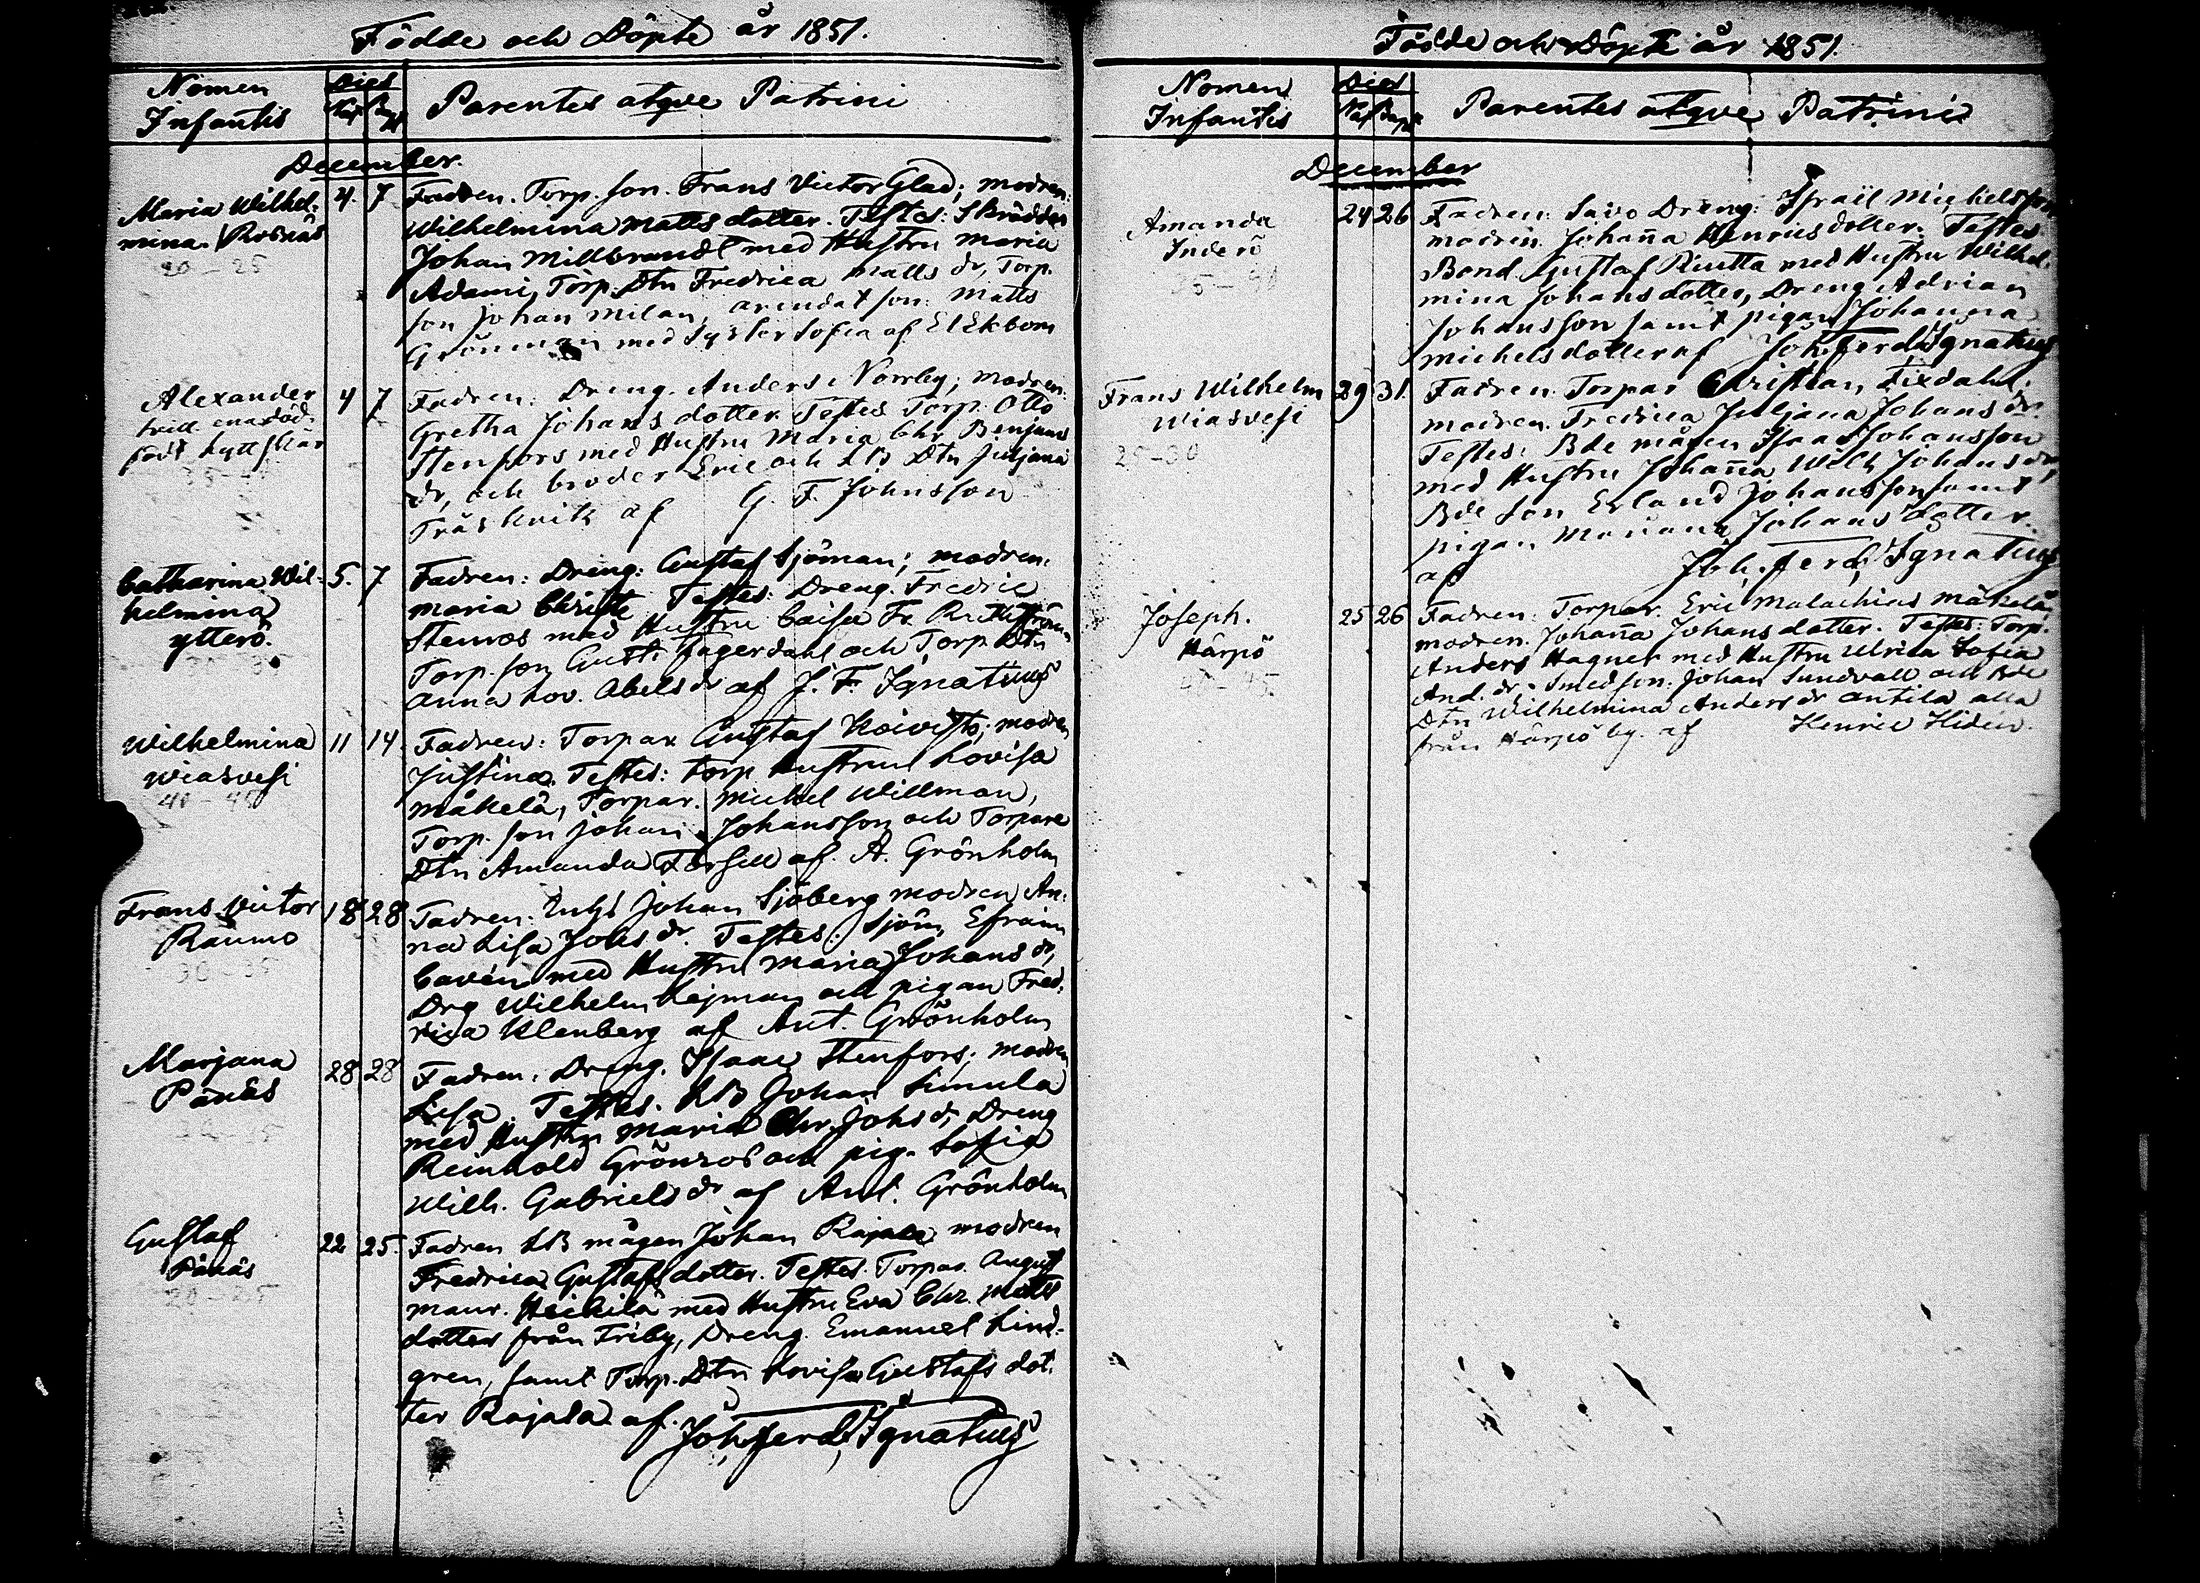 Födde och Döpte år 1851.
Nomen Infantis
Dies
Nat Bapt
Parentes atqve Patrini
December.
Maria Wilhel-
mina. Rosnäs
20-25
4. 7
Fadren. Torp. son. Frans Victor Glad; modren:
Wilhelmina Mattsdotter. Testes: Skräddar
Johan Millbrandt med Hustru Maria
Adami, Torp. Dtn Fredrica Matts dr, Torp.
son Johan Milan, arendat. son: Matts
Grönman med Syster Sofia af El Ekbom
Alexander
född Lyttskär
35-
4 7
Fadren: Dreng. Anders Norrby; modren:
Gretha Johans dotter. Testes Torp. Otto
Stenfors med Hustru Maria Chr. Benjams
dr, och broder Eric och LB Dtn Juljana
Träskvik af G. F. Johnsson
Catharina Wil-
helmina
ytterö.
30-35
5. 7
Fadren: Dreng: Gustaf Sjöman; modren:
Maria Christe. Testes: Dreng. Fredric
Stenros med Hustru Caisa Fr.
Torp. son Gust. Fagerdahl och Torp Dtn
Anna Lov. Abels dr af J. F. Ignatius
Wilhelmina
Wiasvesi
40-45
11 14.
Fadren: Torpar Gustaf Koivisto; modren
Justina. Testes: torp Hustrun Lovisa
Mäkelä, Torpar. Michel Willman,
Torp. son Johan Johansson och Torpare
Dtn Amanda Forsell af. A. Grönholm
Frans Victor
Raumo
30-35
18 28
Fadren: Inhs Johan Sjöberg modren An-
na Lisa Johs dr. Testes: Sjöm, Efraim
Cavén med Hustru Maria Johans dr,
Drg Wilhelm Lejman och pigan Fred-
rica Klenberg af Ant. Grönholm
Marjana
Pänäs
28 28
Fadren: Dreng. Isaac Stenfors; modren
Lisa. Testes. LB Johan Simula
med Hustru Maria Chr. Johs dr, Dreng
Reinhold Grönros och pig. Sofia
Wilh. Gabriels dr af Ant. Grönholm
Gustaf
Pänäs
20-25
22 25.
Fadren LB mågen Johan Rajala modren
Fredrica Gustafs dotter. Testes. Torpar. August
Maur. Heickilä med Hustru Eva Chr. Matts
dotter från Friby, Dreng. Emanuel Lind-
gren, samt Torp. Dtn Lovisa Gustafs dot-
ter Rajala. af.
Joh. Ferd. Ignatius
Födde och Döpte år 1851.
Nomen Infantis
Dies
Nat Bapt
Parentes atqve Patrini
December
Amanda
Inderö
24 26
Fadren: Savo Dreng: Israël Michelsson
modren. Johaña Henricsdotter. Testes.
Bond. Gustaf med Hustru Wilhel-
mina Johansdotter, Dreng Adrian
Johansson samt pigan Johanna
Michelsdotter af Joh. Ferd. Ignatius
Frans Wilhelm
Wiasvesi
25-30
29 31.
Fadren. Torpar Christian Fixdahl;
modren. Fredrica Juljana Johans dr.
Testes: Bde mågen Isaac Johansson
med Hustru Johaña Wilh. Johans dr
Bde son Erland Johansson samt
pigan Mariana Johans dotter.
af Joh. Ferd. Ignatius
Joseph.
Härpö
25 26
Fadren: Torpar. Eric Malachias Mäkelä,
modren. Johaña Johans dotter. Testes: Torp.
Anders Hagner med Hustru Ulrica Sofia
And. dr. Smedson: Johan Sundvall och Bde
Dtn Wilhelmina Anders dr Antila alla
från Härpö by. af Henric Hiden.